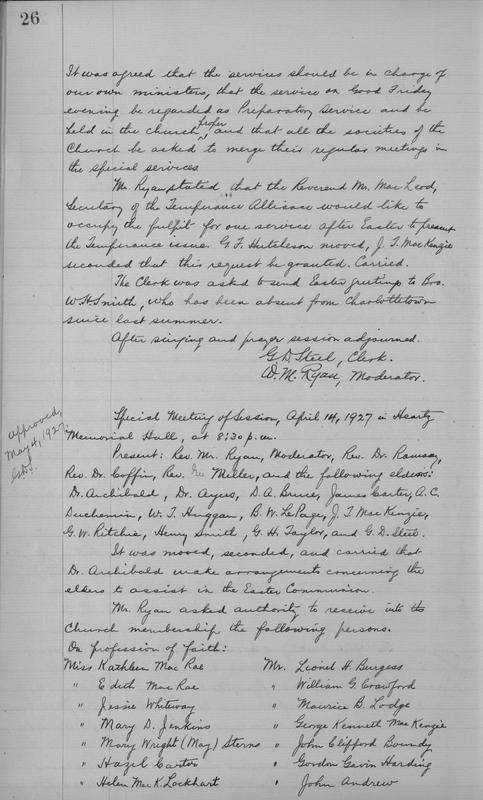 26
It was agreed that the services should be in charge of
our own ministers, that the service on Good Friday
evening be regarded as Preparatory Service and be
held in the church proper, and that all the societies of the
Church be asked to merge their regular meetings in
the special services.
Mr. Ryan stated that the Reverend Mr. MacLeod,
Secretary of the Temperance Alliance would like to
occupy the pulpit for one service after Easter to present
the Temperance issue. G. F. Hutcheson moved, J. T. MacKenzie
seconded that this request be granted. Carried.
The Clerk was asked to send Easter greetings to Bro.
W. H. Smith, who has been absent from Charlottetown
since last summer.
After singing and prayer session adjourned.
G D Steel, Clerk.
W. M. Ryan, Moderator.
Approved,
May 4, 1927.
Special Meeting of Session, April 14, 1927 in Heartz
Memorial Hall, at 8:30 p.m.
Present: Rev. Mr. Ryan, Moderator, Rev. Dr. Ramsay,
Rev. Dr. Coffin, Rev. Geo Miller, and the following elders:
Dr. Archibald, Dr. Ayers, D. A. Bruce, James Carter, A. C.
Duchemin, W. T. Huggan, B. W. LePage, J. T. MacKenzie,
G. W. Ritchie, Henry Smith, G. H. Taylor, and G. D. Steel.
It was moved, seconded, and carried that
Dr. Archibald make arrangements concerning the
elders to assist in the Easter Communion.
Mr. Ryan asked authority to receive into the
Church membership the following persons.
On profession of faith:
Miss Kathleen MacRae Mr. Lionel H. Burgess
" Edith MacRae " William G. Crawford
" Jessie Whitway " Maurice B. Lodge
" Mary D. Jenkins " George Kennett MacKenzie
" Mary Wright (May) Sterns " John Clifford Boundy
" Hazel Carter " Gordon Gavin Harding
" Helen MacK. Lockhart " John Andrew